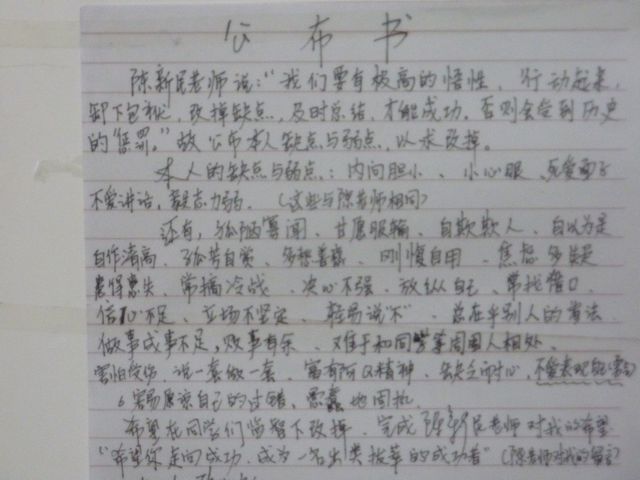 公布书
陈新民老师说：“我们要有极高的悟性，行动起来，
卸下包袱，改掉缺点，及时总结，才能成功。否则会受到历史
的“惩罚。”故公布本人缺点与弱点，以求改掉。
本人的缺点与弱点：内向胆小、小心眼、死爱面子
不爱讲话，毅志力弱。（这些与陈老师相同）
还有，孤陋寡闻、甘愿服输、自欺欺人、自以为是
自作清高、孤芳自赏、多愁善感、刚愎自用、焦虑多疑
患得患失、常搞冷战、决心不强、放纵自己、常找借口
信心不足、立场不坚定、轻易说“不”、总在乎别人的看法
做事成事不足，败事有余、难于和同学等周围人相处、
害怕受伤、说一套做一套、富有阿Q精神、缺乏耐心、不爱表现
容易原谅自己的过错、地
希望在同学们监督下改掉、完成陈新民老师对我的希望
“希望你走向成功，成为一名出类拔萃的成功者”（陈老师对我的留言）